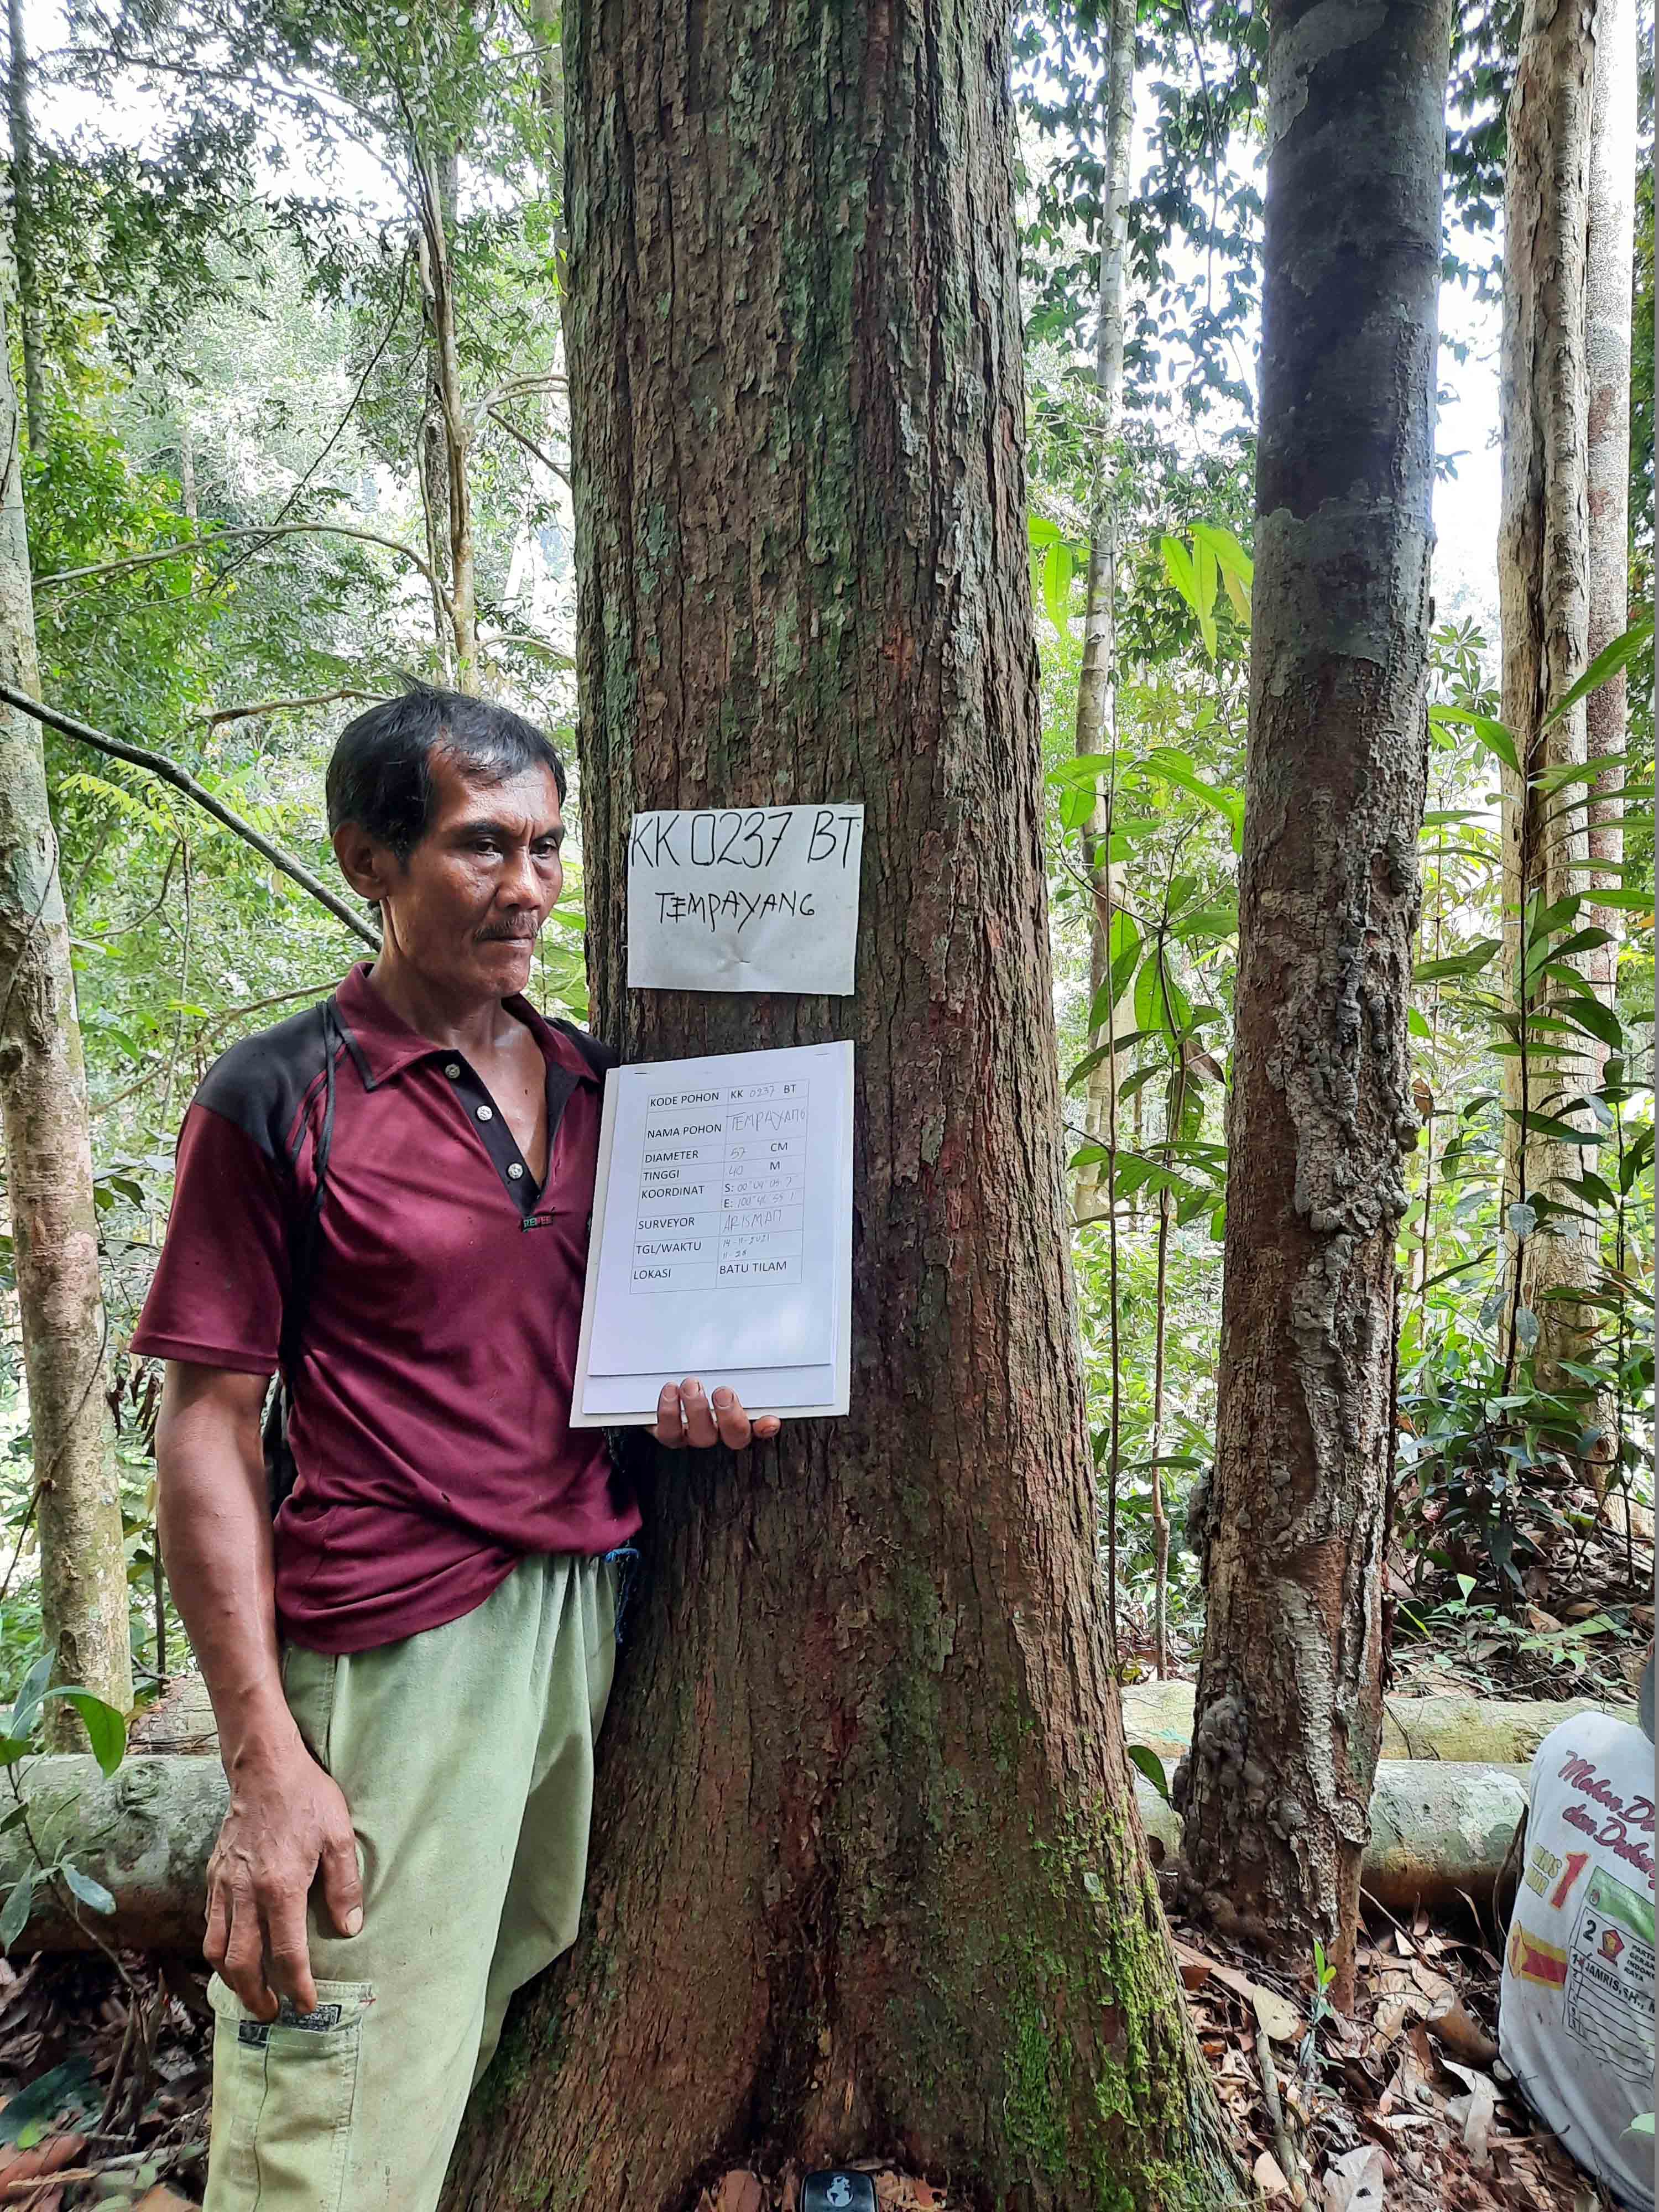 KK 0237 BT
TEMPAYANG
KODE POHON KK 0237 BT
NAMA POHON TEMPAYANG
DIAMETER 57 CM
TINGGI 40 M
KOORDINAT S: 00°04'
E: 100°
SURVEYOR ARISMAN
TGL/WAKTU 14-11-2021
LOKASI BATU TILAM
Mohon
dan
1
2
PARTAI
JAMRIS,SH.,